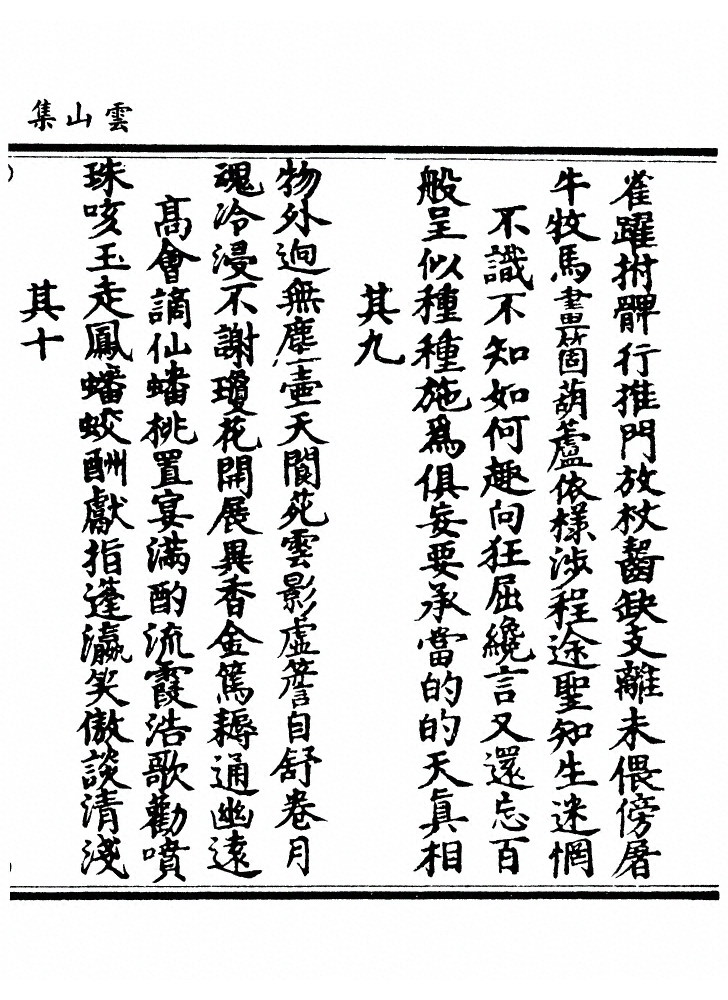 雲山集
雀躍拊髀行推門放杖齧缺支離未偎傍屠
牛牧馬畫箇葫蘆依樣涉程途聖知生迷惘
不識不知如何趣向狂屈纔言又還忘百
般呈似種種施爲俱妄要承當的的天真相
其九
物外逈無塵壺天閬苑雲影虛簷自舒卷月
魂冷浸不謝瓊花開展異香金篤耨通幽遠
高會謫仙蟠桃置宴滿酌流霞浩歌勸噴
珠咳玉走鳳蟠蛟酬獻指蓬瀛笑傲談清淺
其十